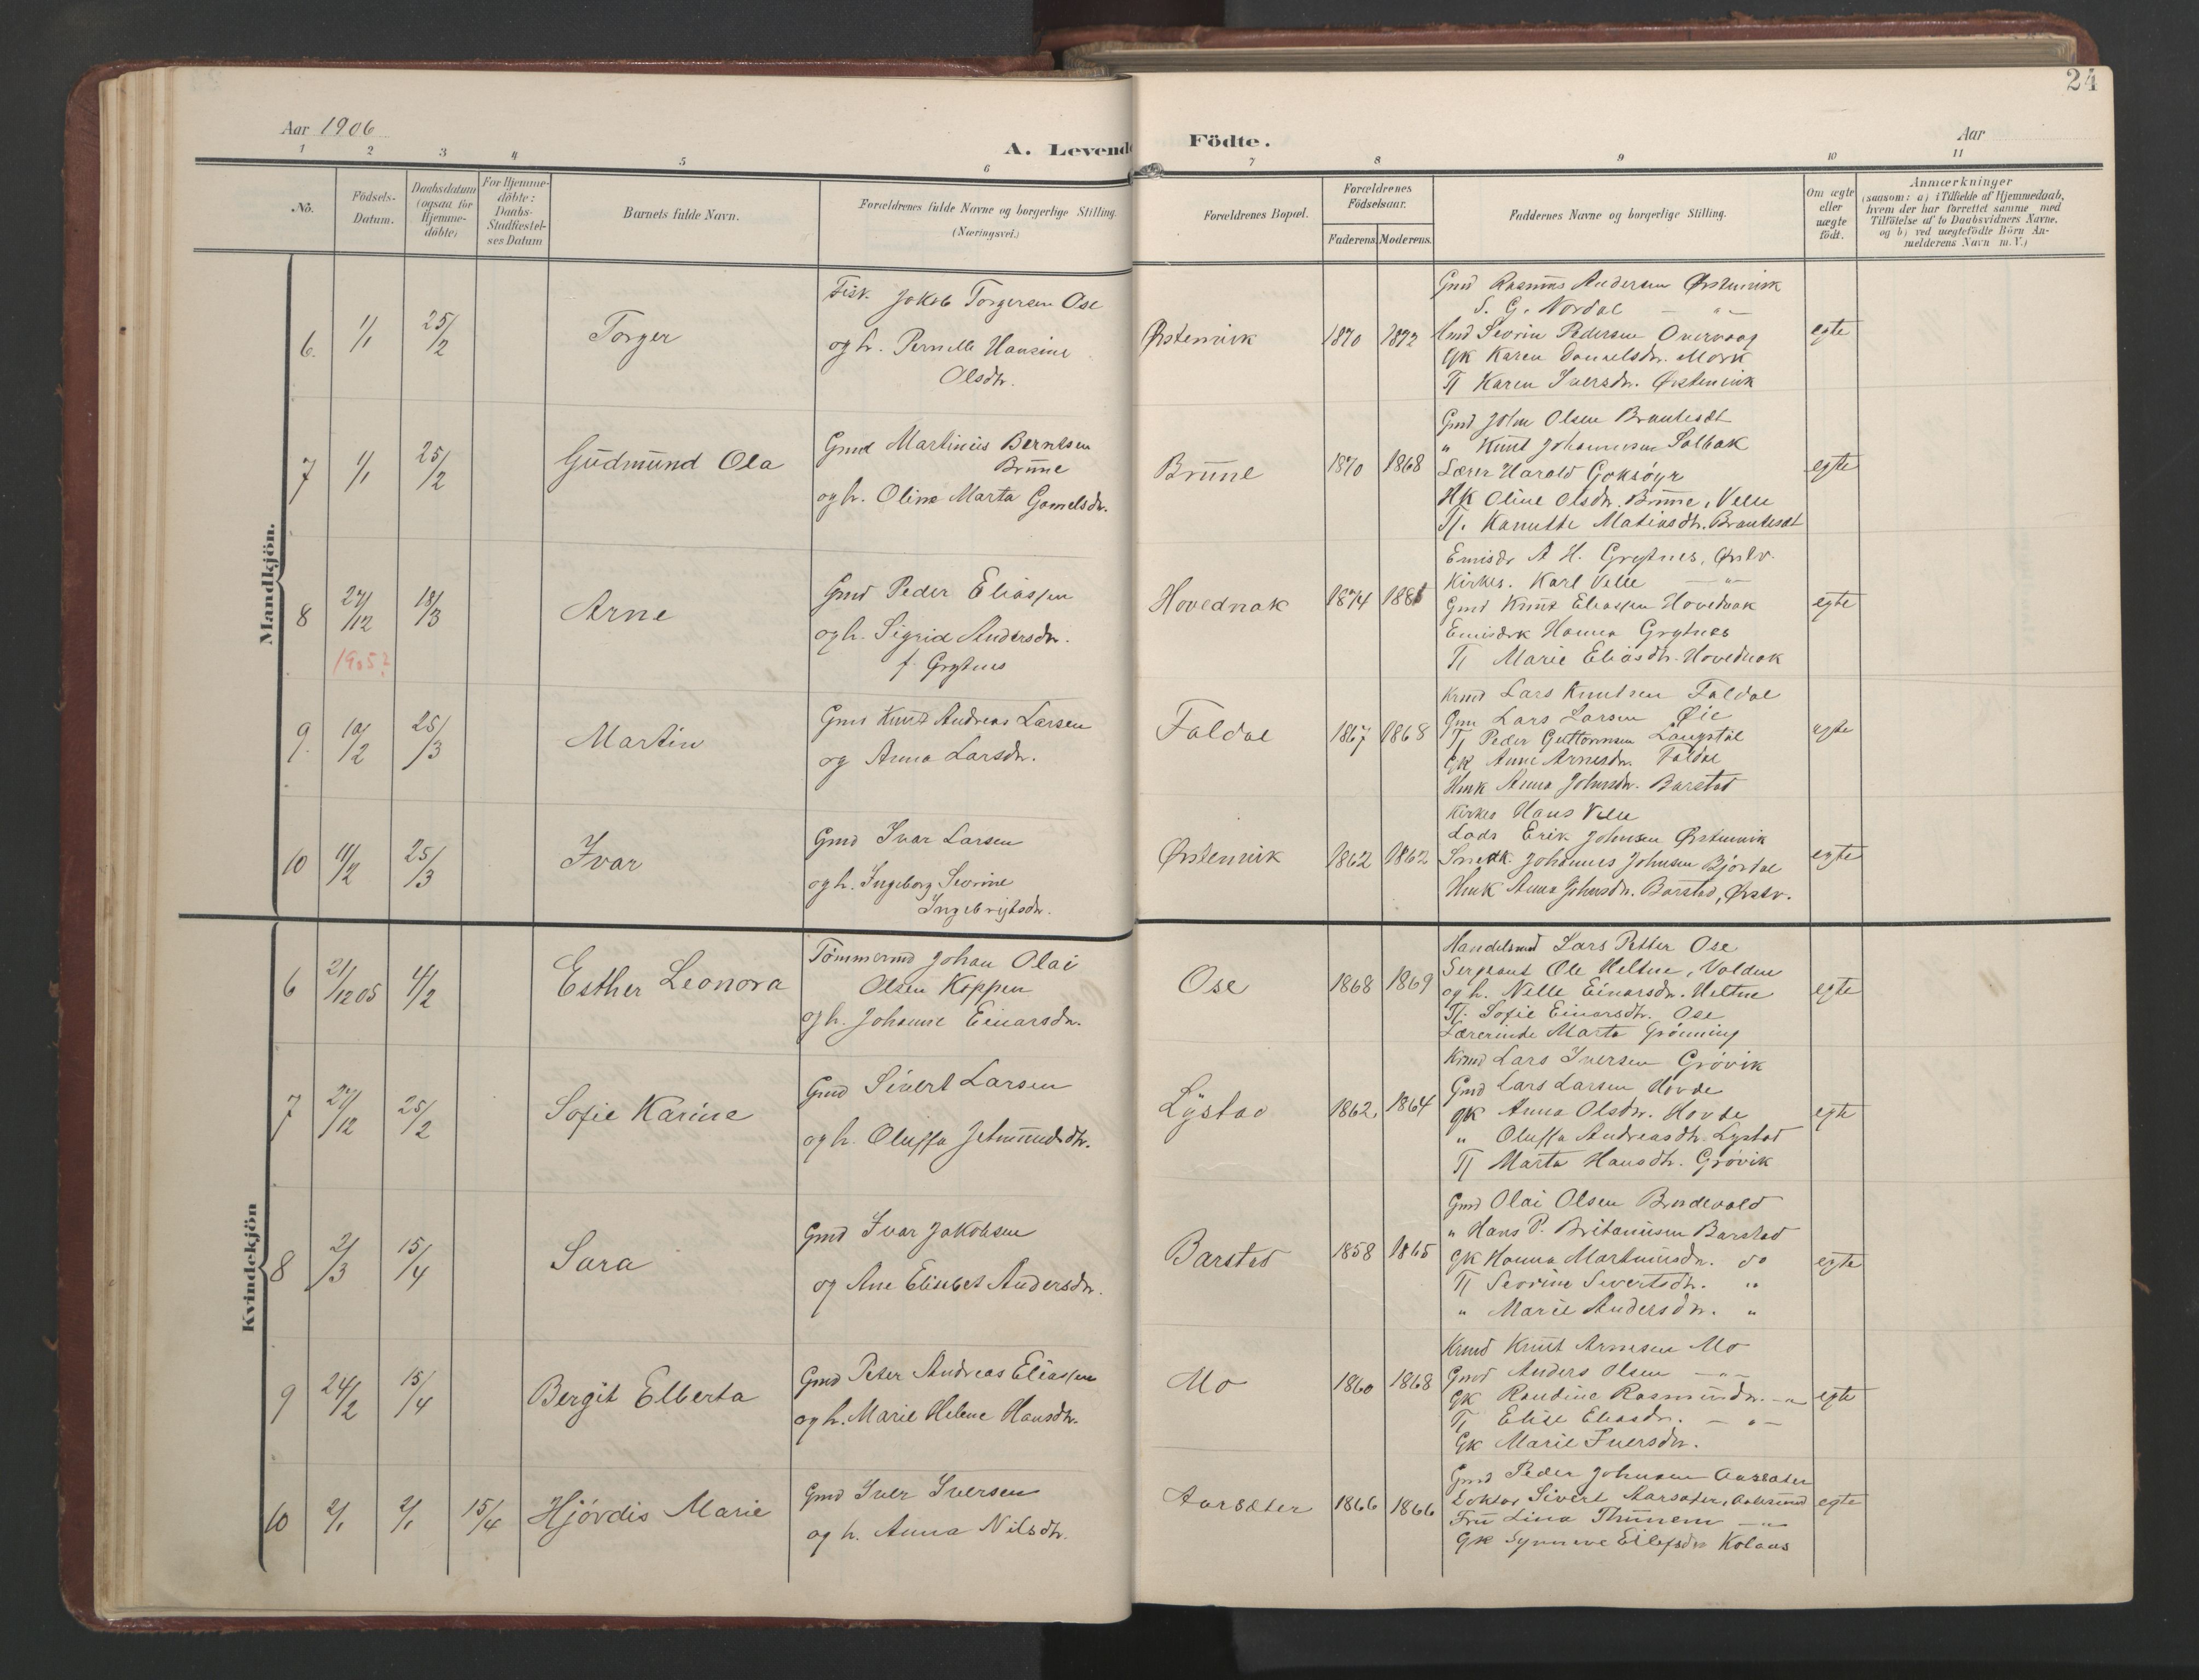 24
Aar 1906
A. Levende Födte.
Aar
1 2 3 4 5 6 7 8 9 10 11
No.
Födsels-
Datum.
Daabsdatum
(ogsaa for
Hjemme-
döbte)
For Hjemme-
döbte:
Daabs-
Stadfæstel-
ses Datum
Barnets fulde Navn.
Forældrenes fulde Navne og borgerlige Stilling.
(Næringsvei.)
Forældrenes Bopæl.
Forældrenes
Födselsaar.
Faderens. Moderens.
Faddernes Navne og borgerlige Stilling.
Om ægte
eller
uægte
født.
Anmærkninger
(saasom: a) i Tilfælde af Hjemmedaab,
hvem der har forrettet samme med
Tilföielse af to Daabsvidners Navne.
og b) ved uægtefödte Börn An-
melderens Navn m. V.)
Mandkjön.
6. 1/1 25/2 Torger
Fisk. Jakob Torgersen Ose
og h. Pernille Hansine
Olsdtr.
Østenvik 1870 1872
Gmd Rasmus Andersen Østenvik
S. G. Nordal — " —
Gmd Sevrin Pedersen Overvaag
Gk Karen Danielsdtr. Mork
Pj Karen Iversdtr. Østenvik
egte
7 1/1 25/2 Gudmund Ola
Gmd Martinus Berntsen
Brune
og h. Oline Marta Gamelsdtr.
Brune 1870 1868
Gmd John Olsen Brautesæt
" Knut Johannesen Solbak
Lærer Harald Goksöyr
Hk Oline Olsdtr. Brune, Velle
Pj. Kanutte Matiasdtr. Brautesæt
egte
8 27/12 18/3 Arne
1905?
Gmd Peder Eliassen
og h. Sigrid Andersdtr.
f. Grytnes
Hovednak 1874 1881
Emisær A. H. Grytnes, Østv.
Kirkes. Karl Velle — " —
Gmd Knut Eliassen Hovednak
Emisærk Hanna Grytnes
Pj Marie Eliasdtr. Hovednak
egte
9. 10/2 25/3 Martin
Gmd Knut Andreas Larsen
og Anna Larsdtr.
Foldal 1867 1868
Krmd Lars Knutsen Foldal
Gmd Lars Larsen Øie
Pj Peder Guttormsen Langstøl
Gk Anne Arnesdtr. Foldal
Hmk Anna Johnsdtr. Barstad
egte
10 11/2 25/3 Ivar
Gmd Ivar Larsen
og h. Ingeborg Sevrine
Ingebrigtsdtr.
Østenvik 1862 1862
Kirkes Hans Velle
Lods Erik Johnsen Østenvik
Snedk. Johannes Johnsen Bjørdal
Hmk Anna Johnsdtr. Barstad, Østv.
egte
Kvindekjön
6 21/12 05 4/2 Esther Leonora
Tømmermd Johan Olai
Olsen Koppen
og h. Johanne Einarsdtr.
Ose 1868 1869
Handelsmd Lars Petter Ose
Sergeant Ole Heltne, Volden
og h. Nille Einarsdtr. Heltne
Pj. Sofie Einarsdtr. Ose
Lærerinde Marta Grönning
egte
7 27/12 25/2 Sofie Karine
Gmd Sivert Larsen
og h. Oluffa Jetmundsdtr.
Lystad 1862. 1864
Krmd Lars Iversen Grövik
Gmd Lars Larsen Hovde
Gk Anna Olsdtr. Hovde
" Oluffa Andreasdtr. Lystad
Pj Marta Hansdtr. Grövik
egte
8 2/3 15/4 Sara
Gmd Ivar Jakobsen
og Ane Elisabet Andersdtr.
Barstad 1858 1865
Gmd Olai Olsen Brudevold
" Hans P. Britanusen Barstad
Gk Hanna Martinusdtr. do
Pj Sevrine Sivertsdtr. "
" Marie Andersdtr. "
egte
9 24/2 15/4 Bergit Elberta
Gmd Peter Andreas Eliassen
og h. Marie Helene Hansdtr.
Mo 1860 1868
Krmd Knut Arnesen Mo
Gmd Anders Olsen — " —
Gk Randine Rasmusdtr. — " —
Pj Elise Eliasdtr. — " —
Gk Marie Iversdtr.
egte
10 2/1 2/1 15/4 Hjördis Marie
Gmd Iver Iversen
og h. Anna Nilsdtr.
Aarsæter 1866 1866
Gmd Peder Johnsen Aarsæter
Doktor Sivert Aarsæter, Aalesund
Fru Lina Thunem — " —
Gk Synneve Eilefsdtr Kolaas
egte